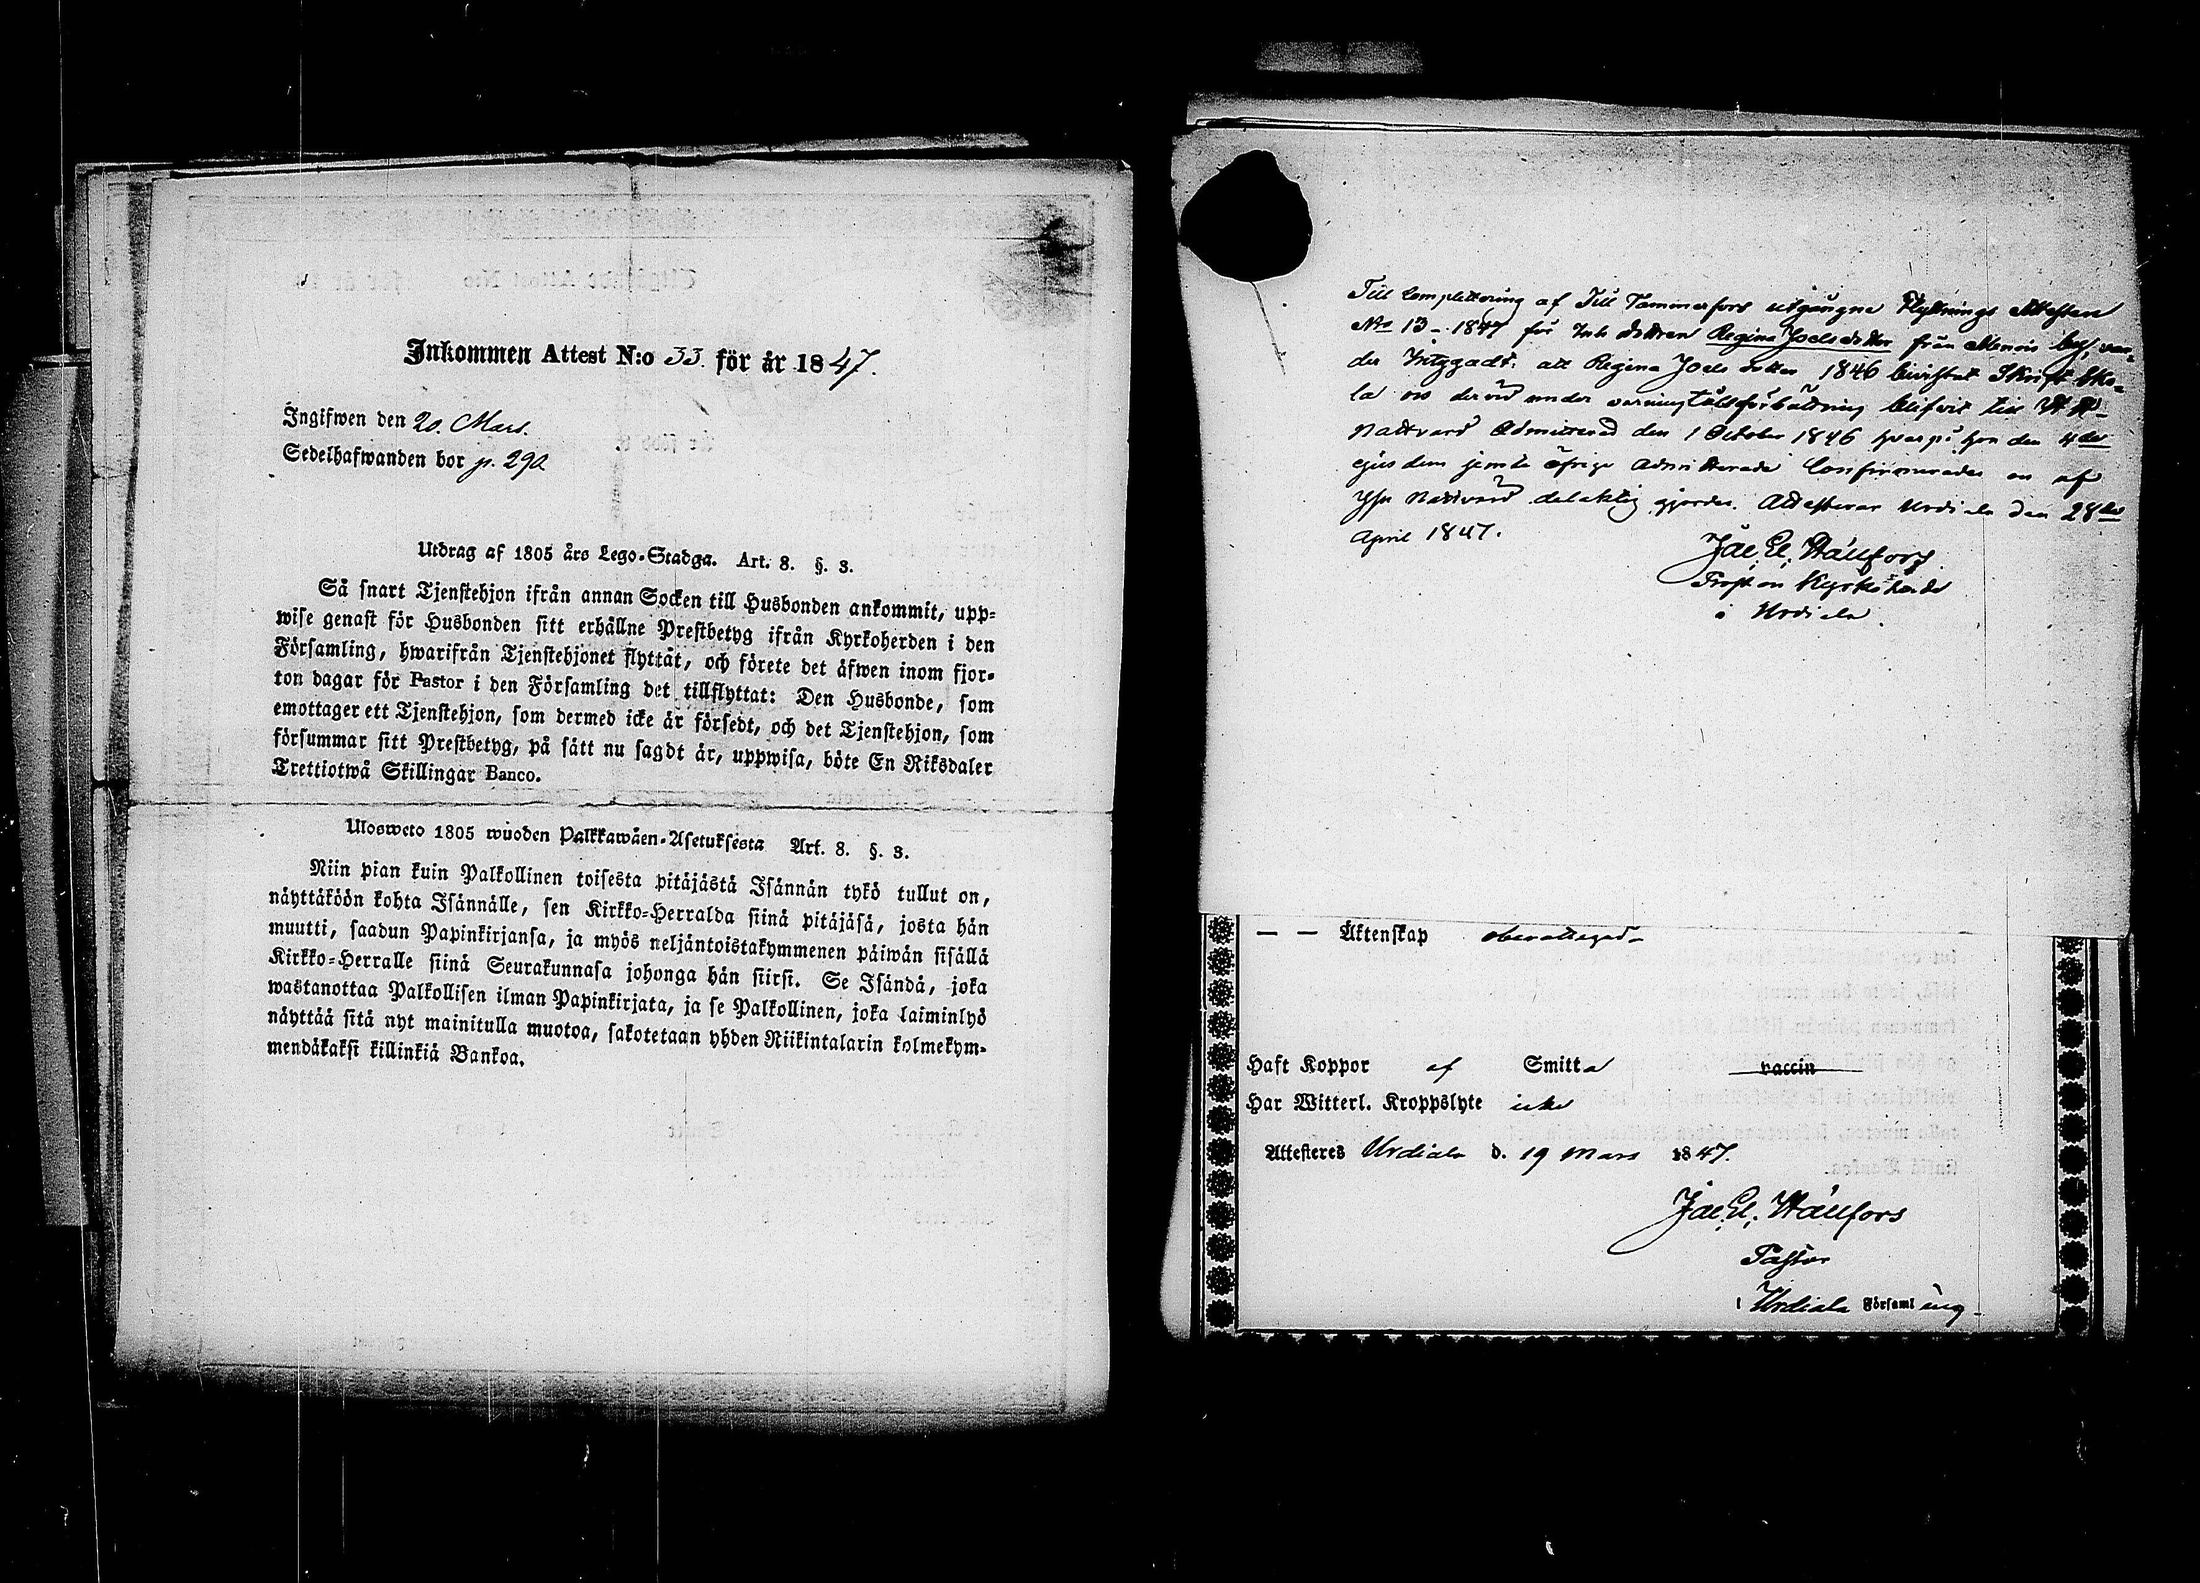 Inkommen Attest N:o 33. för år 1847.
Ingifwen den 20. Mars.
Sedelhafwanden bor p. 290
Utdrag af 1805 års Lego-Stadga. Art. 8. §. 3.
Så snart Tjenstehjon ifrån annan Socken till Husbonden ankommit, upp-
wise genast för Husbonden sitt erhållne Prestbetyg ifrån Kyrkoherden i den
Församling, hwarifrån Tjenstehjonet flyttat, och förete det äfwen inom fjor-
ton dagar för Pastor i den Församling det tillflyttat: Den Husbonde, som
emottager ett Tjenstehjon, som dermed icke är försedt, och det Tjenstehjon, som
försummar sitt Prestbetyg, på sätt nu sagdt är, uppwisa, böte En Riksdaler
Trettiotwå Skillingar Banco.
Ulosweto 1805 wuoden Palkkawäen-Asetuksesta Art. 8. §. 3.
Niin pian kuin Palkollinen toisesta pitäjästä Isännän tykö tullut on,
näyttäköön kohta Isännälle, sen Kirkko-Herralda siinä pitäjäsä, josta hän
muutti, saadun Papinkirjansa, ja myös neljäntoistakymmenen päiwän sisällä
Kirkko-Herralle siinä Seurakunnasa johonga hän siirsi. Se Isändä, joka
wastanottaa Palkollisen ilman Papinkirjata, ja se Palkollinen, joka laiminlyö
näyttää sitä nyt mainitulla muotoa, sakotetaan yhden Riikintalarin kolmekym-
mendäkaksi killinkiä Bankoa.
Till Complettering af Till Tammerfors utgångne Flyttnings Attesten
No 13 - 1847 för Inh dottren Regina Joelsdotter från Menois by, var-
der Intygadt, att Regina Joels dotter 1846 bivistat Skrift sko-
la os dervid under varning till förbättring blifvit till H H
Nattvard Admitterad den 1 October 1846 hvarpå hon den 4de
ejusdem jemte öfrige Admitterade Confirmerades en af
Hsn Nattvard delaktig gjordes. Attesterar Urdiala den 28de
April 1847.
Jac. El. Hällfors.
Prost en Kyrkoherde
i Urdiala.
— — Äktenskap obevattegad
Haft Koppor af Smitta vaccin
Har Witterl. Kroppslyte icke
Attesteres Urdiala d. 19 Mars 1847.
Jac. El. Hällfors
Pastor
i Urdiala Församling